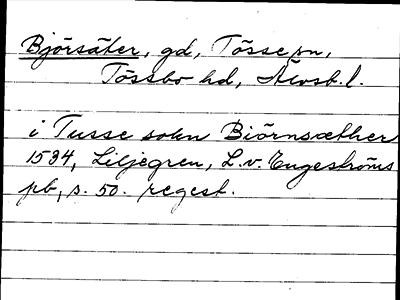 Björsäter, gd, Tösse sn,
Tössbo hd, Älvsb. l.
i Tusse sokn Biörnsæther
1534, Liljegren, L. v. Engeströms
pb, s. 50. regest.